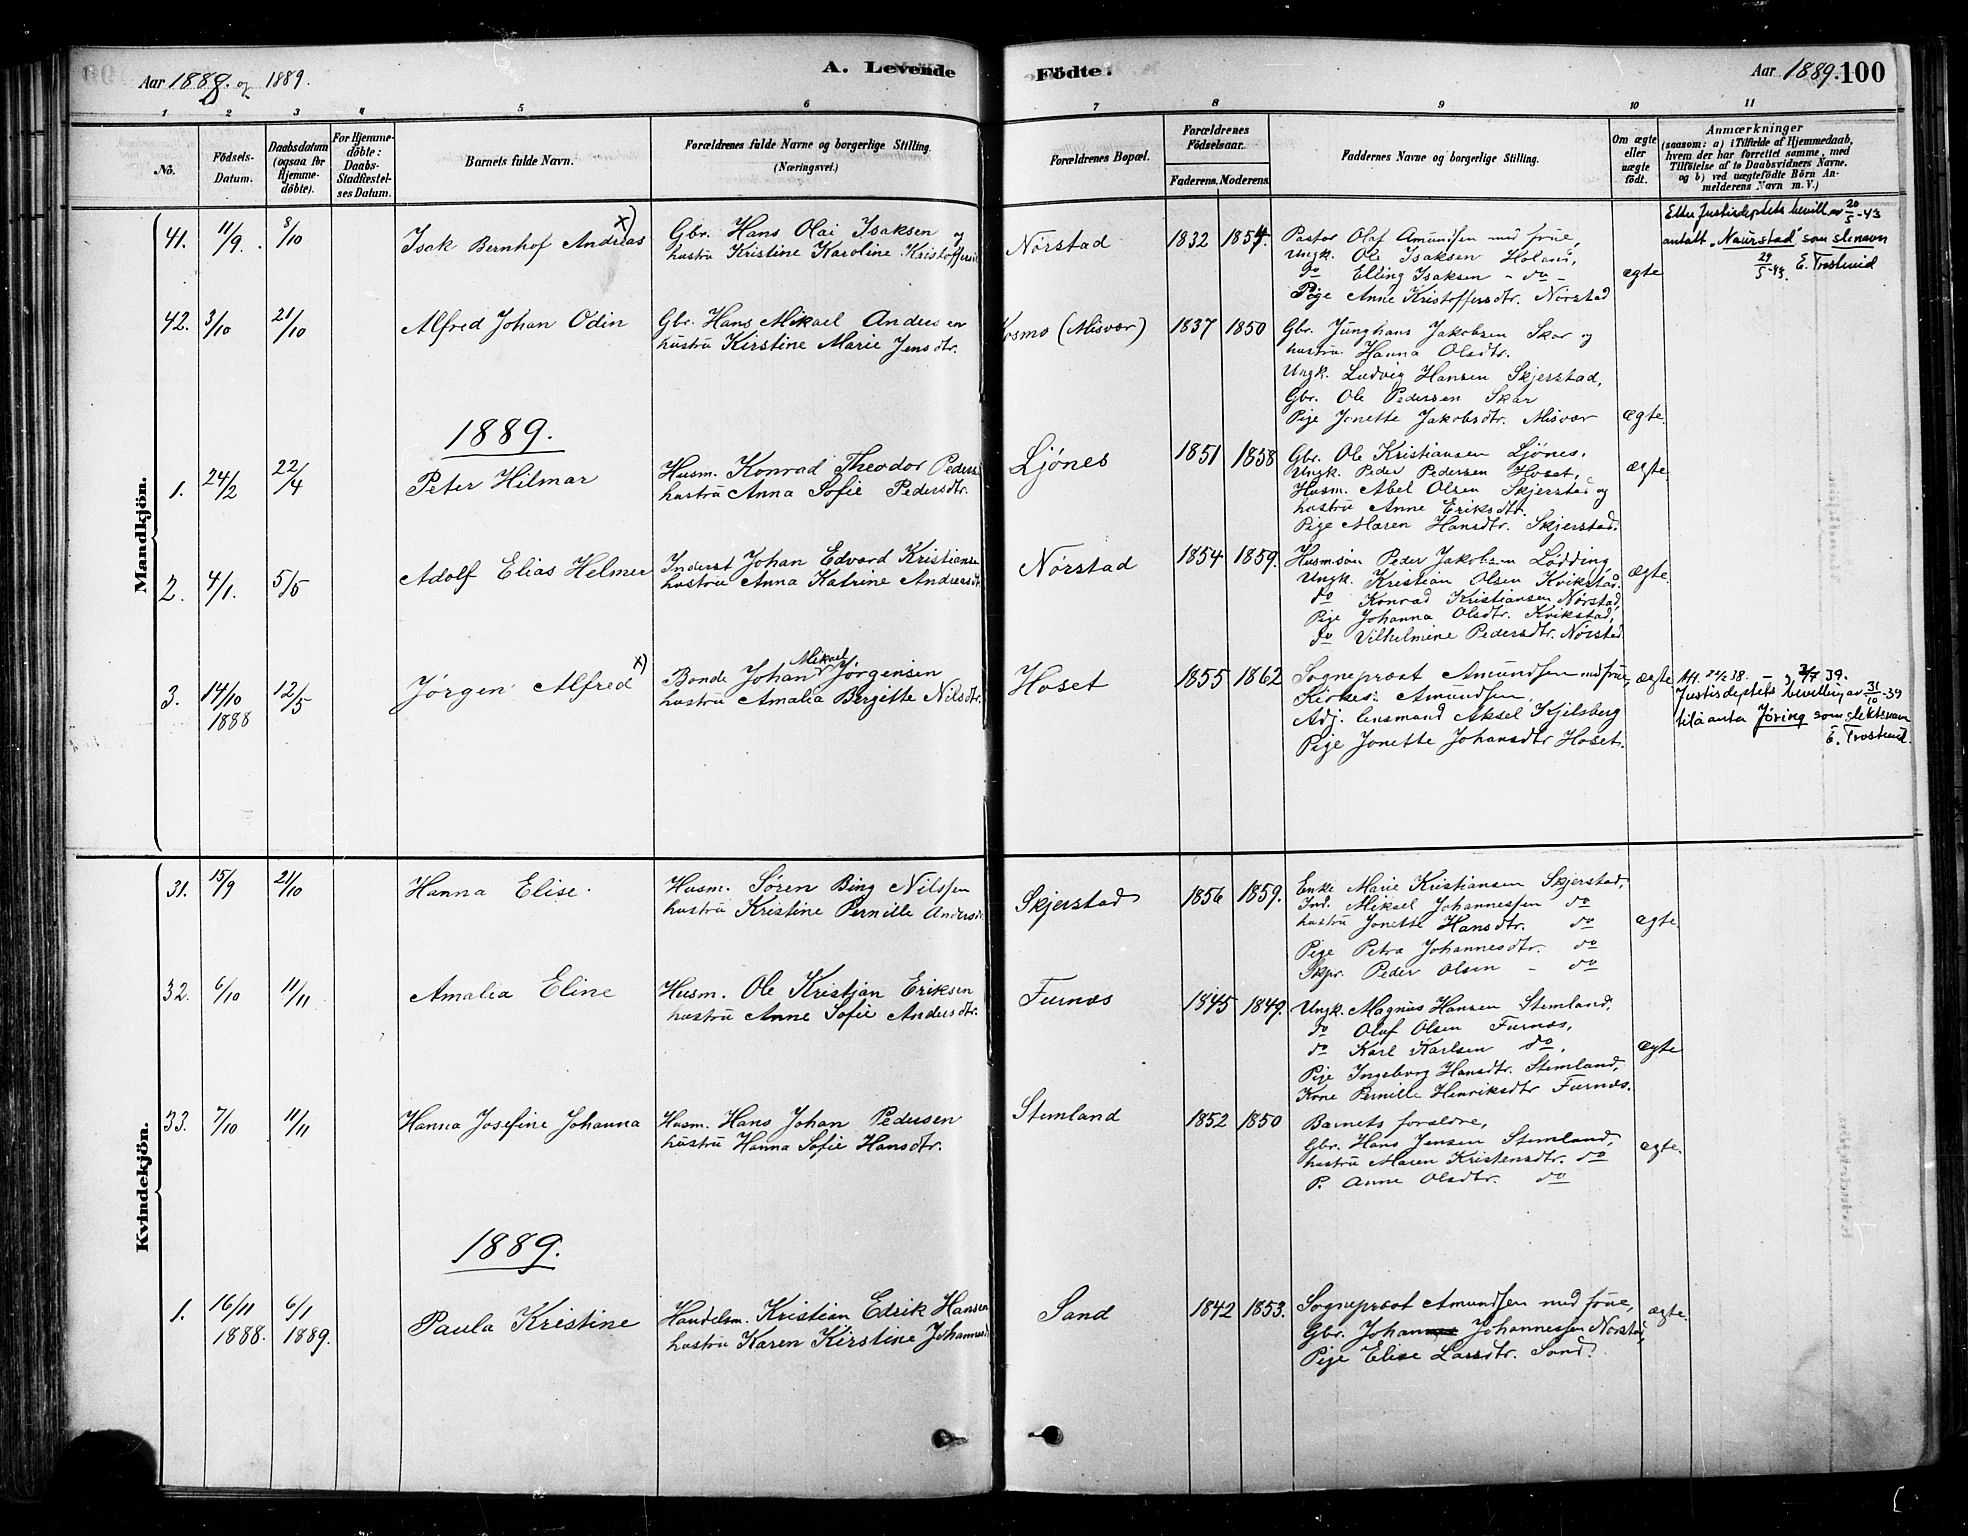 Aar 1888. og 1889.
A. Levende
Födte.
Aar 1889. 100
1 2 3 4 5 6 7 8 9 10 11
No.
Födsels-Datum.
Daabsdatum (ogsaa för Hjemme-döbte).
For Hjemme-döbte: Daabs-Stadfæstel-ses Datum.
Barnets fulde Navn.
Forældrenes fulde Navne og borgerlige Stilling. (Næringsvei.)
Forældrenes Bopæl.
Forældrenes Födselsaar.
Faderens. Moderens.
Faddernes Navne og borgerlige Stilling.
Om ægte eller uægte födt.
Anmærkninger
(saasom: a) i Tilfælde af Hjemmedaab, hvem der har forrettet samme, med Tilföielse af to Daabsvidners Navne. og b) ved uægtefödte Börn An-melderens Navn m. V.)
Mandkjön.
41. 11/9. 8/10 Isak Bernhof Andreas x)
Gbr. Hans Olai Isaksen og
hustru Kristine Karoline Kristoffersd
Nørstad 1832 1854.
Pastor Olaf Amundsen med frue,
Ungk. Ole Isaksen Holand,
do Elling Isaksen - do -
Pige Anne Kristoffersdtr. Nørstad
ægte
Etter Justisdeptets bevill. av 20/5-43
antatt "Naurstad" som slenavn
29/5-43. E. Trostmid
42. 3/10 21/10 Alfred Johan Odin
Gbr. Hans Mikael Andersen
hustru Kirstine Marie Jensdtr.
Kosmo (Misvær) 1837 1850
Gbr. Junghans Jakobsen Skar og
hustru Hanna Olsdtr.
Ungk. Ludvig Hansen Skjerstad,
Gbr. Ole Pedersen Skar
Pige Jonette Jakobsdtr. Misvær
ægte.
1889.
1. 24/2 22/4 Peter Hilmar
Husm. Konrad Theodor Peders
hustru Anna Sofie Pedersdtr.
Ljönes 1851 1858
Gbr. Ole Kristiansen Ljönes,
Ungk. Peder Pedersen Hoset,
Husm. Abel Olsen Skjerstad og
hustru Anne Eriksdtr.
Pige Maren Hansdtr. Skjerstad.
ægte.
2. 4/1. 5/5 Adolf Elias Helmer
Inderst Johan Edvard Kristianse
hustru Anna Katrine Andreasdt
Nørstad 1854 1859.
Husmsön Peder Jakobsen Lödding,
Ungk. Kristian Olsen Kvikstad.
do Konrad Kristiansen Nørstad,
Pige Johanna Olsdtr. Kvikstad,
do Vilhelmine Pedersdtr. Nørstad
ægte.
3. 14/10 1888 12/5 Jørgen Alfred x)
Bonde Johan Mikael Jørgensen
hustru Amalia Bergitte Nilsdtr.
Hoset 1855 1862
Sognepræst Amundsen med frue,
Kirkes: Amundsen,
Adj. lensmand Aksel Kjelsberg
Pige Jonette Johansdtr Hoset.
ægte
Justisdeptets bevilling av 31/10-39
til å anta Jöring som slektsnavn
E. Trostmid.
Kvindekjön.
31. 15/9 21/10 Hanna Elise.
Husm. Søren Bing Nilssen
hustru Kristine Pernille Andersd
Skjerstad 1856 1859.
Enke Marie Kristiansen Skjerstad,
Ind. Mikael Johannessen do
hustru Jonette Hansdtr. do
Pige Petra Johannesdtr. do
Skpr. Peder Olsen - do
ægte.
32. 6/10 11/11 Amalia Eline
Husm. Ole Kristjan Eriksen
hustru Anne Sofie Andersdtr.
Furnæs 1845 1849.
Ungk. Magnus Hansen Stemland,
do Oluf Olsen Furnæs,
do Karl Karlsen do,
Pige Ingeborg Hansdtr. Stemland,
Kone Pernille Henriksdtr Furnæs.
ægte
33. 7/10 11/11 Hanna Josefine Johanna
Husm. Hans Johan Pedersen
hustru Hanna Sofie Hansdtr.
Stemland 1852 1850
Barnets forældre,
Gbr. Hans Jensen Stemland,
hustru Maren Kristensdtr. do
P. Anne Olsdtr. do
ægte.
1889.
1. 16/11 1888. 6/1 1889. Paula Kristine
Handelsm. Kristian Edrik Hansen
hustru Karen Kirstine Johannesd
Sand 1842 1853.
Sognepræst Amundsen med frue,
Gbr. Johannes Johannessen Nørstad,
Pige Elise Larsdtr. Sand.
ægte.